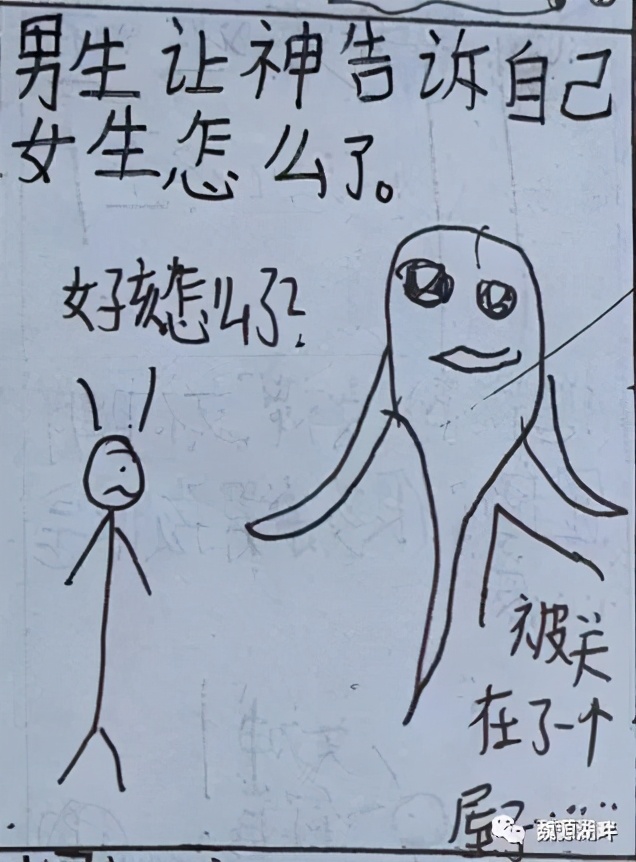 男生让神告诉自己
女生怎么了。
女孩怎么了?
被关
在了一个
屋子……
湖畔